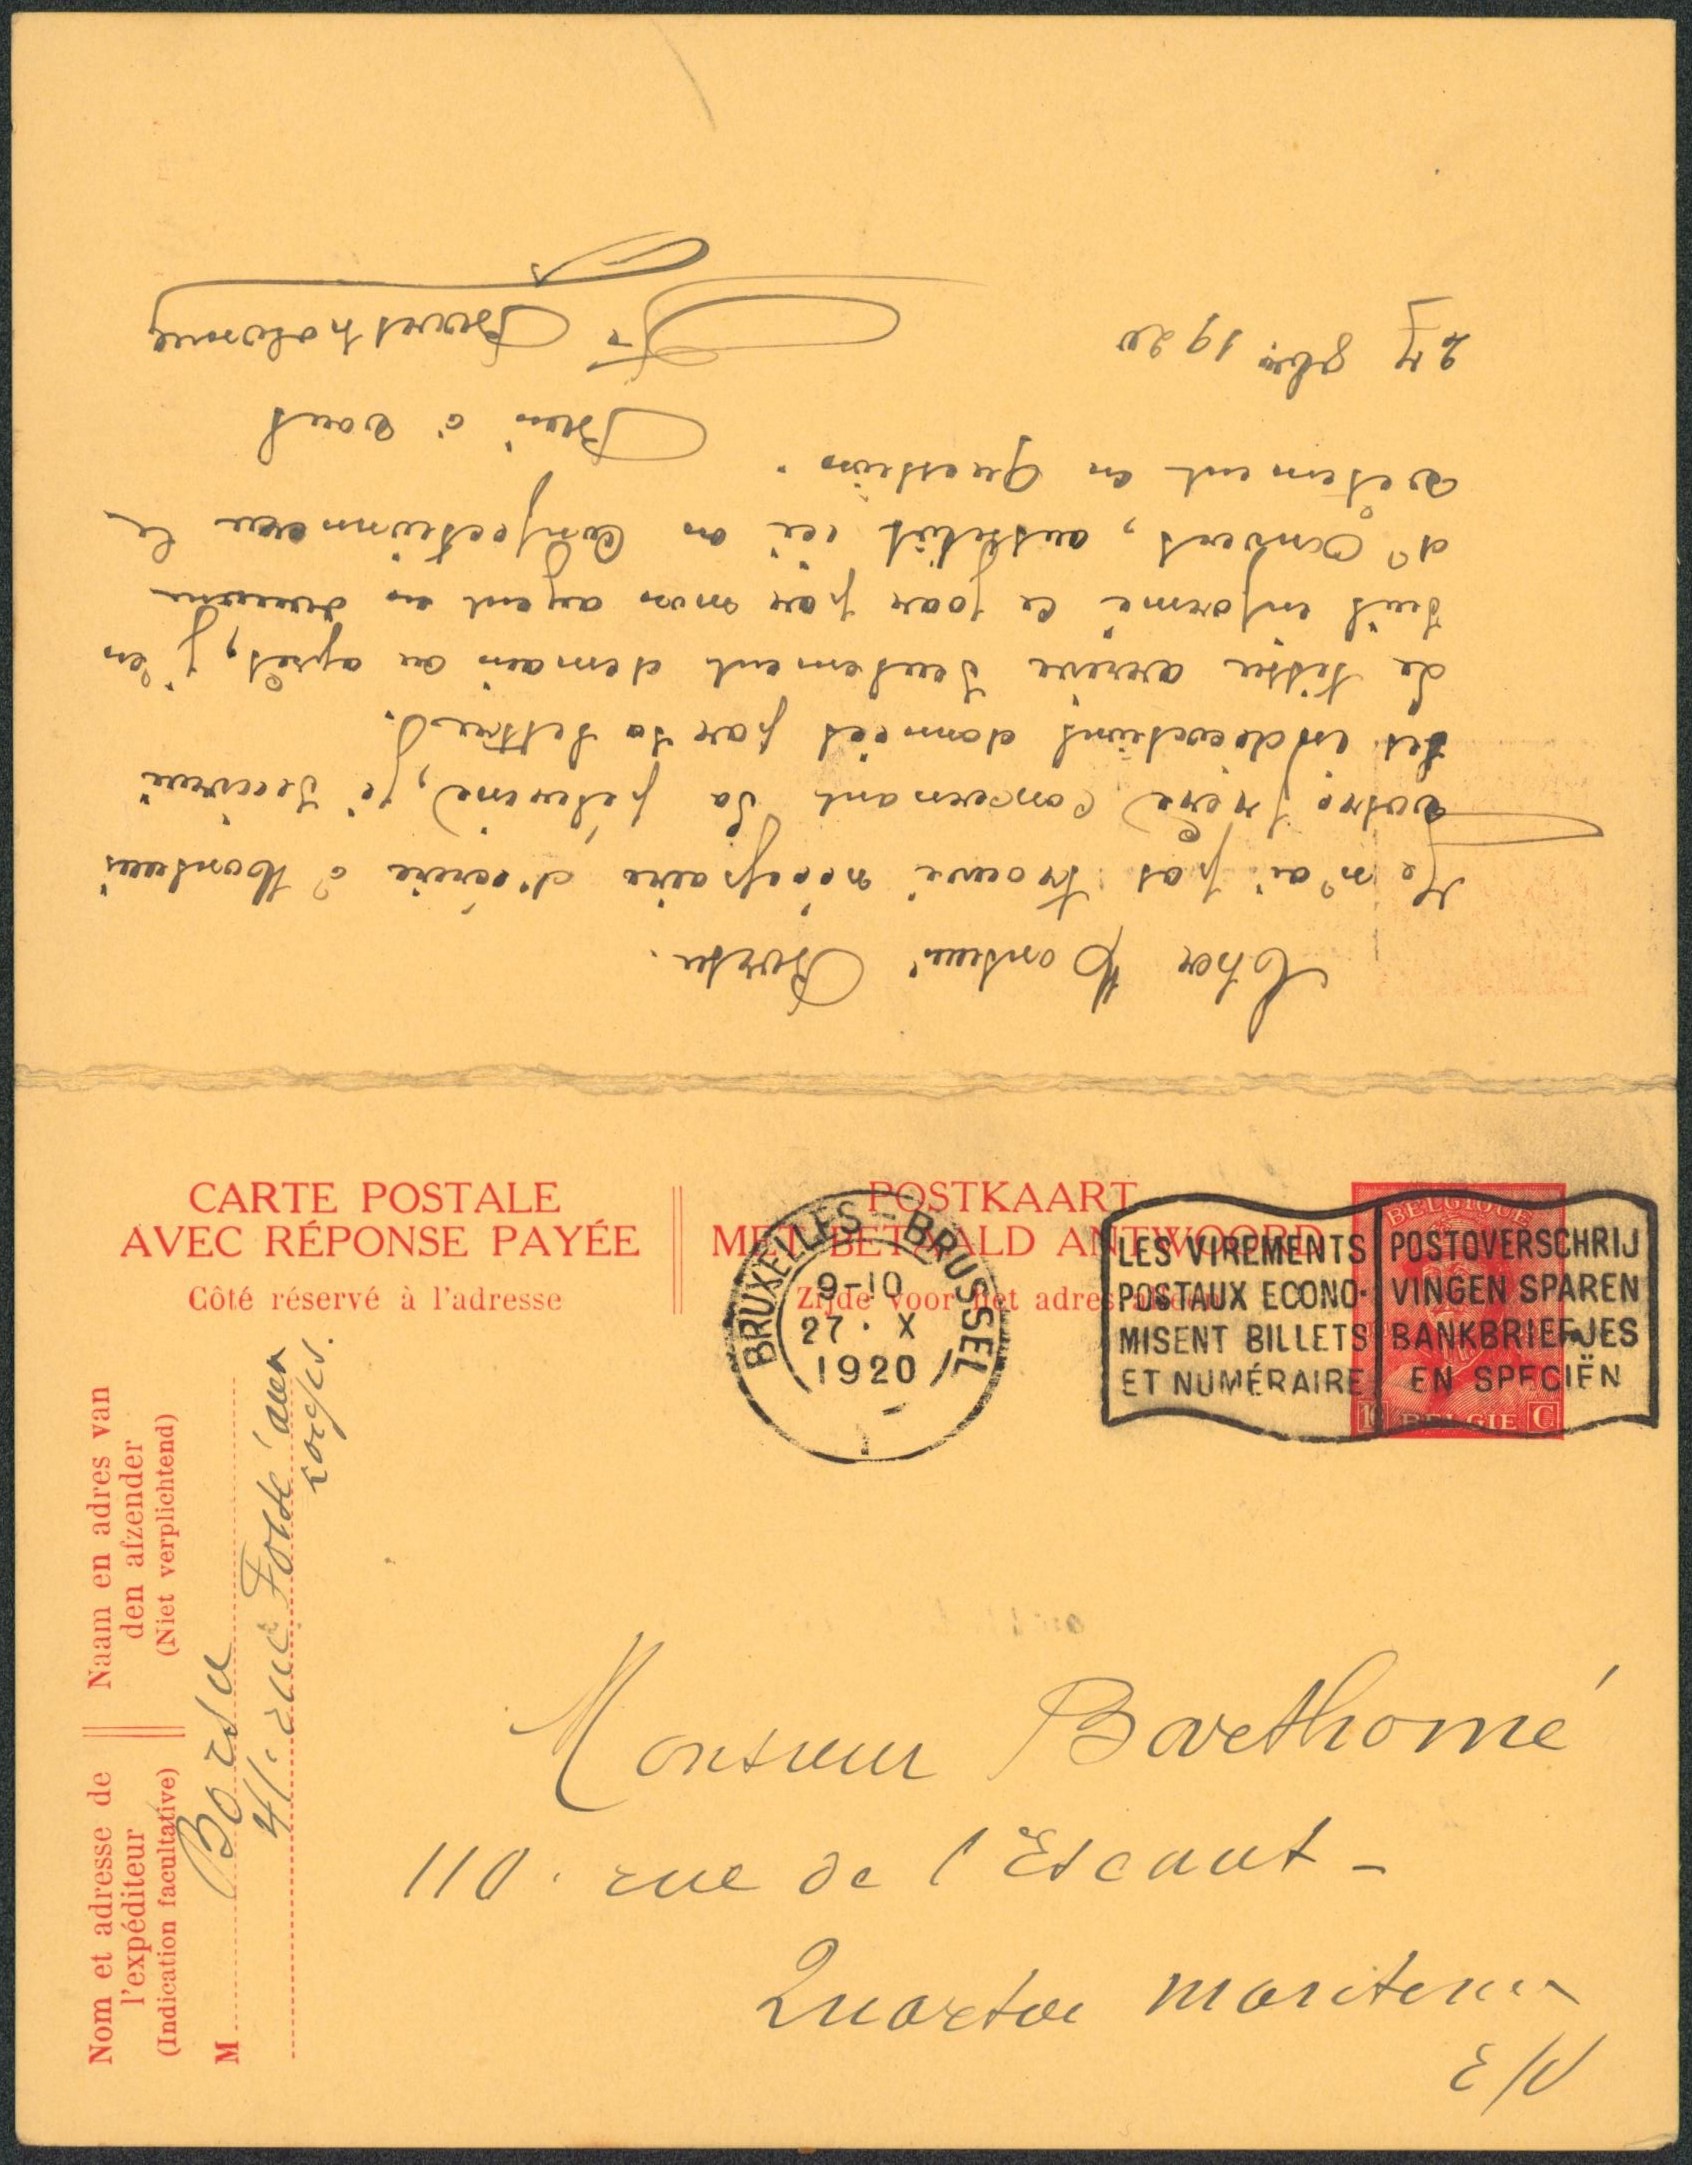 Cher Monsieur Borsu.
Je n'ai pas trouvé nécessaire d'écrire à Monsieur
votre frère concernant sa pèlerine, j'ai
les indications données par sa lettre.
Le tissu arrive seulement demain ou après, j'en
suis informé ce jour par mon agent en
d'Anvers, aussitôt ici on confectionnera le
vêtement en question.
Bien à vous
27 8bre 1920
CARTE POSTALE
AVEC RÉPONSE PAYÉE
Côté réservé à l'adresse
POSTKAART
MET BETAALD ANTWOORD
Zijde voor het adres
BRUXELLES - BRUSSEL
9-10
27 · X
1920
1
LES VIREMENTS
POSTAUX ECONO-
MISENT BILLETS
ET NUMÉRAIRE
POSTOVERSCHRIJ
VINGEN SPAREN
BANKBRIEFJES
EN SPECIËN
BELGIQUE
BELGIE C
Nom et adresse de
l'expéditeur
(Indication facultative)
Naam en adres van
den afzender
(Niet verplichtend)
M Borsu
41. rue
Monsieur Barethomé
110. rue de l'Escaut -
Quartier maritime
E/V